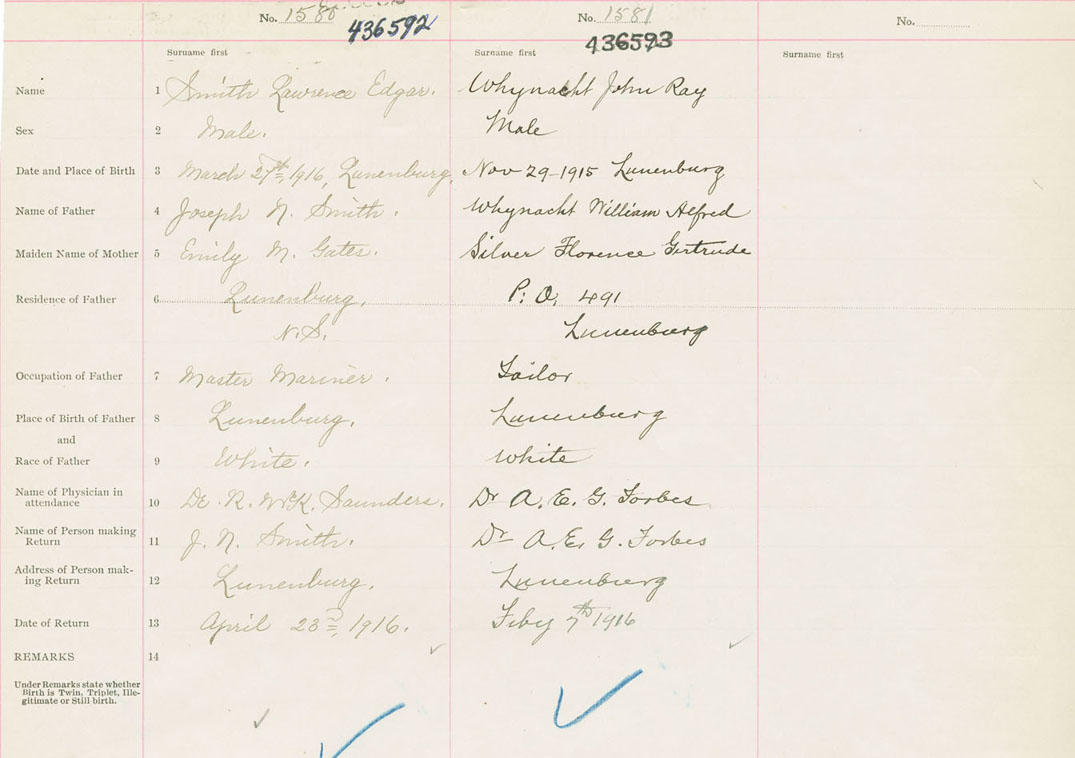 No. 1580 No. 1581 No.
436592 436593
Surname first Surname first Surname first
Name 1 Smith Lawrence Edgar. Whynacht John Ray
Sex 2 Male. Male
Date and Place of Birth 3 March 27th, 1916, Lunenburg, Nov 29-1915 Lunenburg
Name of Father 4 Joseph N. Smith. Whynacht William Alfred
Maiden Name of Mother 5 Emily M. Gates. Silver Florence Gertrude
Residence of Father 6 Lunenburg, P.O. 491
N.S. Lunenburg
Occupation of Father 7 Master Mariner. Tailor
Place of Birth of Father 8 Lunenburg, Lunenburg
and
Race of Father 9 White. White
Name of Physician in
attendance 10 Dr. R. McK. Saunders. Dr A. E. G. Forbes
Name of Person making
Return 11 J. N. Smith. Dr A. E. G. Forbes
Address of Person mak-
ing Return 12 Lunenburg. Lunenburg
Date of Return 13 April 23rd, 1916. Feby 7th 1916
REMARKS 14
Under Remarks state whether
Birth is Twin, Triplet, Ille-
gitimate or Still-birth.